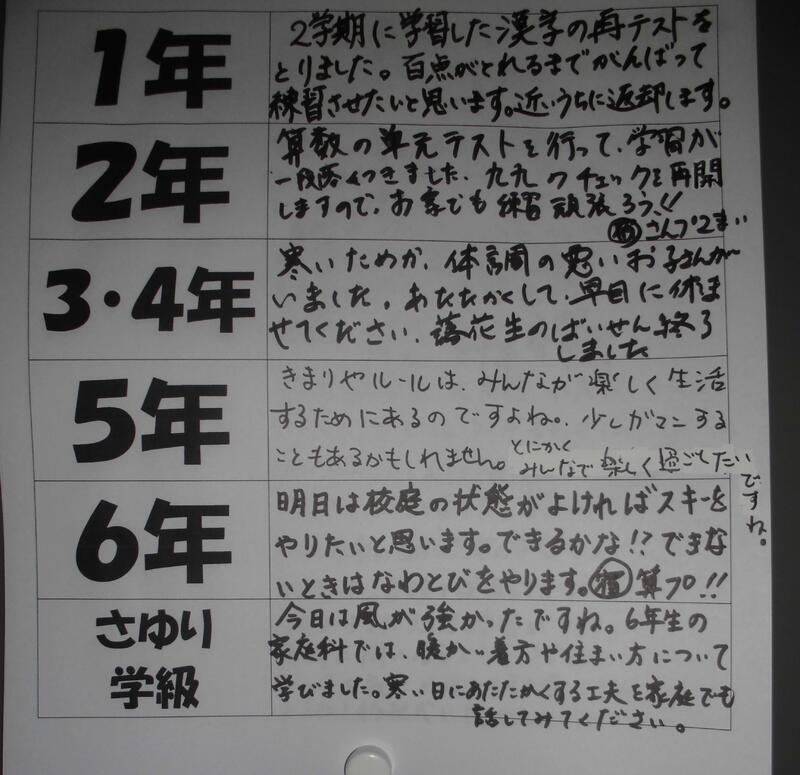 1年
2学期に学習した漢字の再テストを
とりました。百点がとれるまでがんばって
練習させたいと思います。近いうちに返却します。
2年
算数の単元テストを行って、学習が
一段落つきました。九九のチェックを再開
しますので、お家でも練習頑張ろう!!
宿さんプ2まい
3・4年
寒いためか、体調の悪いお子さんが
いました。あたたかくして、早目に休ま
せてください。落花生のばいせん終了
しました
5年
きまりやルールは、みんなが楽しく生活
するためにあるのですよね。少しガマンする
こともあるかもしれません。とにかく
みんなで楽しく過ごしたい
ですね。
6年
明日は校庭の状態がよければスキーを
やりたいと思います。できるかな!?できな
いときはなわとびをやります。宿算プ!!
さゆり
学級
今日は風が強かったですね。6年生の
家庭科では、暖かい着方や住まい方について
学びました。寒い日にあたたかくする工夫を家庭でも
話してみてください。